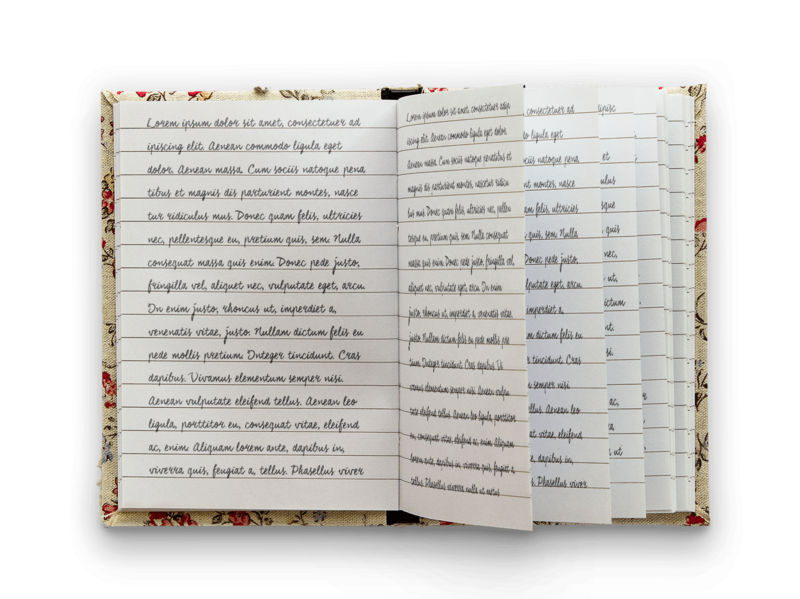 Lorem ipsum dolor sit amet, consectetuer ad
ipiscing elit. Aenean commodo ligula eget
dolor. Aenean massa. Cum sociis natoque pena
tibus et magnis dis parturient montes, nasce
tur ridiculus mus. Donec quam felis, ultricies
nec, pellentesque eu, pretium quis, sem. Nulla
consequat massa quis enim. Donec pede justo,
fringilla vel, aliquet nec, vulputate eget, arcu.
In enim justo, rhoncus ut, imperdiet a,
venenatis vitae, justo. Nullam dictum felis eu
pede mollis pretium. Integer tincidunt. Cras
dapibus. Vivamus elementum semper nisi.
Aenean vulputate eleifend tellus. Aenean leo
ligula, porttitor eu, consequat vitae, eleifend
ac, enim. Aliquam lorem ante, dapibus in,
viverra quis, feugiat a, tellus. Phasellus viver
Lorem ipsum dolor sit amet, consectetuer adip
iscing elit. Aenean commodo ligula eget dolor.
Aenean massa. Cum sociis natoque penatibus et
magnis dis parturient montes, nascetur ridicu
lus mus. Donec quam felis, ultricies nec, pellen
tesque eu, pretium quis, sem. Nulla consequat
massa quis enim. Donec pede justo, fringilla vel,
aliquet nec, vulputate eget, arcu. In enim
justo, rhoncus ut, imperdiet a, venenatis vitae,
justo. Nullam dictum felis eu pede mollis pre
tium. Integer tincidunt. Cras dapibus. Vi
vamus elementum semper nisi. Aenean vulpu
tate eleifend tellus. Aenean leo ligula, porttitor
eu, consequat vitae, eleifend ac, enim. Aliquam
lorem ante, dapibus in, viverra quis, feugiat a,
tellus. Phasellus viverra nulla ut metus
consectetuer ad
ligula eget
sociis natoque pena
montes, nasce
felis, ultricies
quis, sem. Nulla
Donec pede justo,
vulputate eget, arcu.
imperdiet a,
dictum felis eu
tincidunt. Cras
semper nisi.
tellus. Aenean leo
vitae, eleifend
dapibus in,
Phasellus viver
et
quis
nec,
ut,
ac,
ut